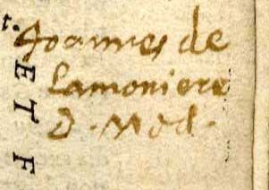 Joannes de
Lamoniere
D. Med.
r.
E T F